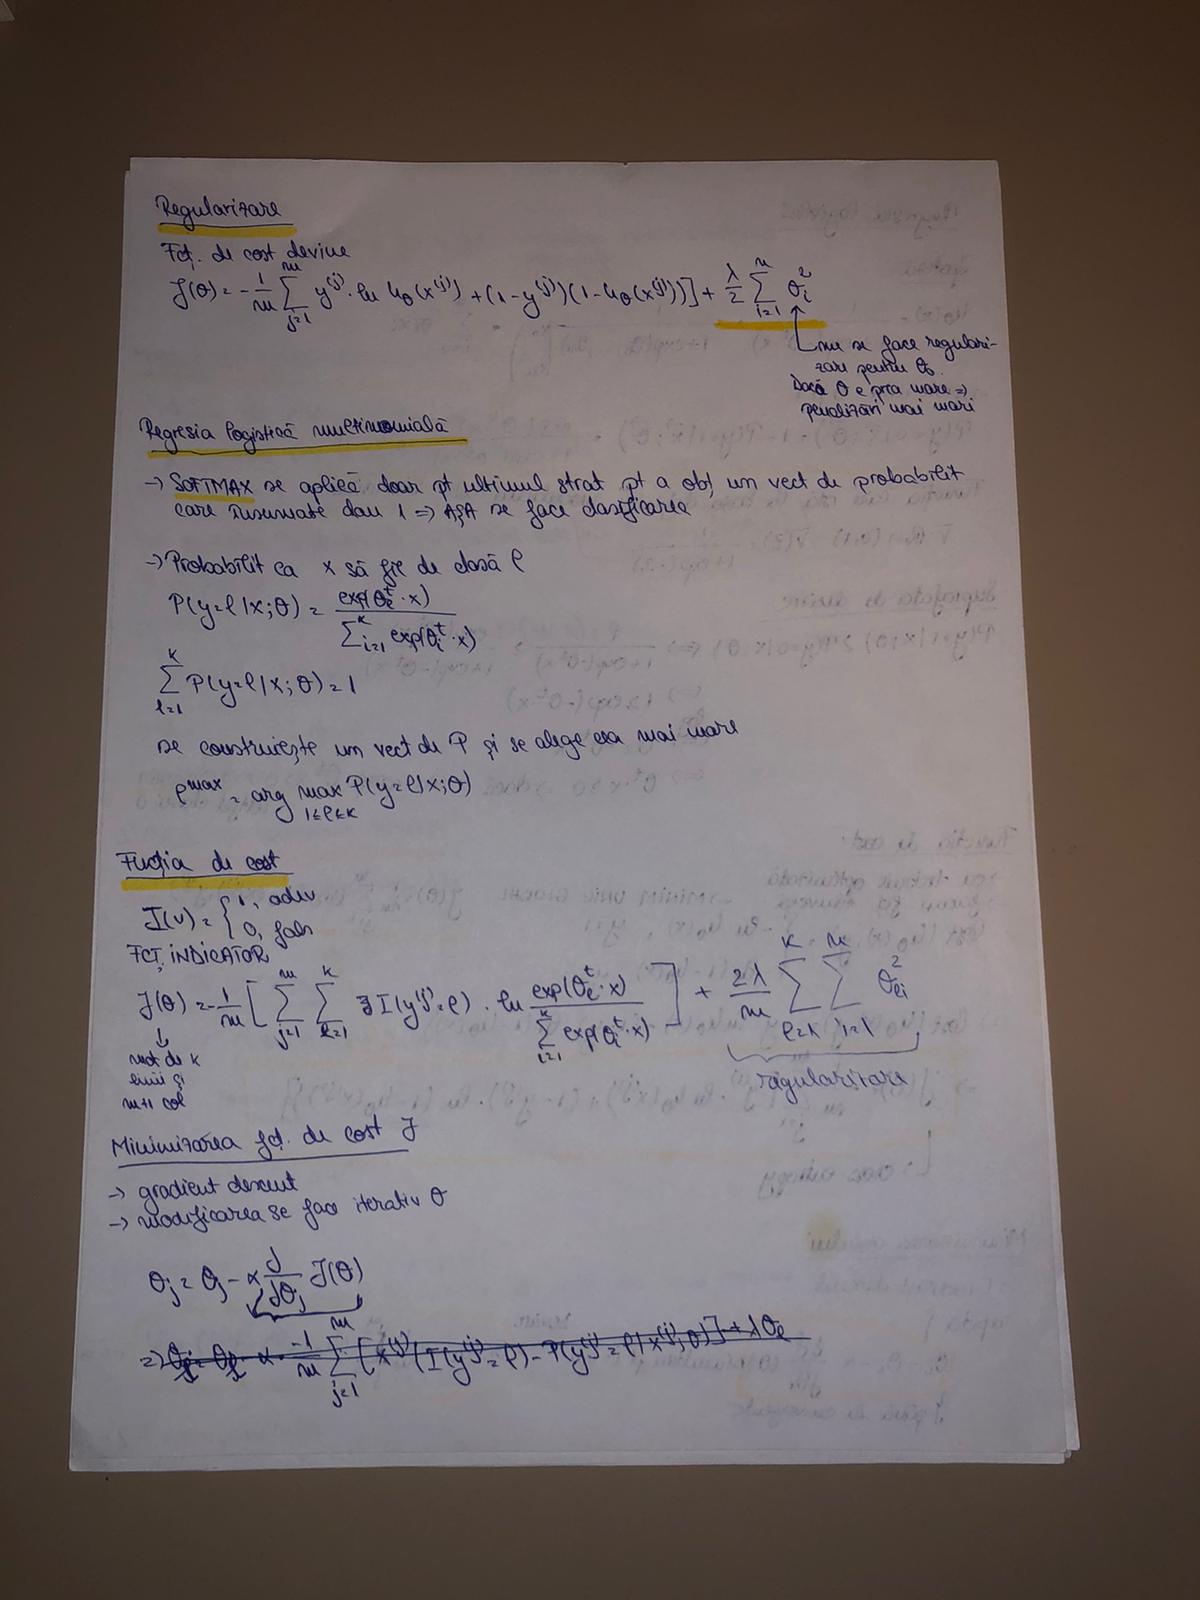 Regularizare
Fcț. de cost devine
J(θ) = -1/m ∑_{j=1}^{m} y^(j) · ln h_θ(x^(j)) + (1 - y^(j))(1 - h_θ(x^(j)))] + λ/2 ∑_{i=1}^{n} θ_i^2
nu se face regulari-
zare pentru θ_0.
Dacă θ e prea mare =>
penalizări mai mari
Regresia logistică multinomială
→ SOFTMAX se aplică doar pt ultimul strat pt a obț un vect de probabilit
care însumate dau 1 => AȘA se face clasificarea
→ Probabilit ca x să fie de clasă l
P(y=l|x;θ) = exp(θ_l^t · x) / ∑_{i=1}^{k} exp(θ_i^t · x)
∑_{l=1}^{k} P(y=l|x;θ) = 1
se construiește un vect de P și se alege cea mai mare
l^max = arg max_{1≤l≤k} P(y=l|x;θ)
Fucția de cost
I(v) = { 1, adev
0, fals
FCȚ INDICATOR
J(θ) = -1/m [ ∑_{j=1}^{m} ∑_{l=1}^{k} I(y^(j)=l) · ln exp(θ_l^t · x) / ∑_{i=1}^{k} exp(θ_i^t · x) ] + 2λ/m ∑_{l=1}^{k} ∑_{i=1}^{n} θ_li^2
regularizare
de k
linii și
n+1 col
Minimizarea fcț. de cost J
→ gradient descent
→ modificarea se face iterativ θ
θ_j = θ_j - α d/dθ_j J(θ)
=> α · -1/m ∑_{j=1}^{m} [x^(j) (I(y^(j)=l) - P(y^(j)=l|x^(j);θ)] + λθ_l